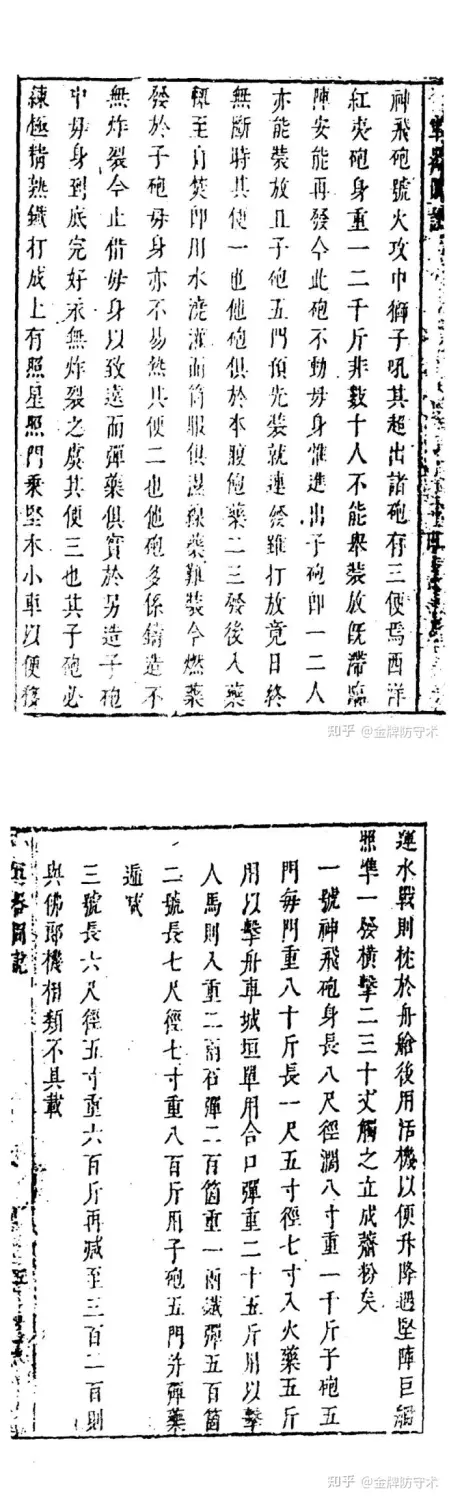 神飛砲號火攻中獅子吼其超出諸砲有三便焉西洋
紅夷砲身重一二千斤非數十人不能舉裝放既滯臨
陣安能再發今此砲不動毋身惟進出子砲卽一二人
亦能裝放且子砲五門預先裝就連發雖打放竟日終
無斷時其便一也他砲俱於本腹飽藥二三發後入藥
輒至自焚卽用水澆灌而筒眼俱濕線藥難裝今燃藥
發於子砲毋身亦不易熱其便二也他砲多係鑄造不
無炸裂今止借毋身以致遠而彈藥俱實於另造子砲
中毋身到底完好永無炸裂之虞其便三也其子砲必
練極精熟鐵打成上有照星照門乘堅木小車以便移
知乎 @金牌防守术
運水戰則枕於舟艙後用活機以便升降遇堅陣巨艦
照準一發橫擊二三十丈觸之立成虀粉矣
一號神飛砲身長八尺徑濶八寸重一千斤子砲五
門每門重八十斤長一尺五寸徑七寸入火藥五斤
用以擊舟車城垣單用合口彈重二十五斤用以擊
人馬則入重二兩石彈二百箇重一兩鐵彈五百箇
二號長七尺徑七寸重八百斤用子砲五門幷彈藥
遞減
三號長六尺徑五寸重六百斤再減至三百二百則
與佛郎機相類不具載
知乎 @金牌防守术